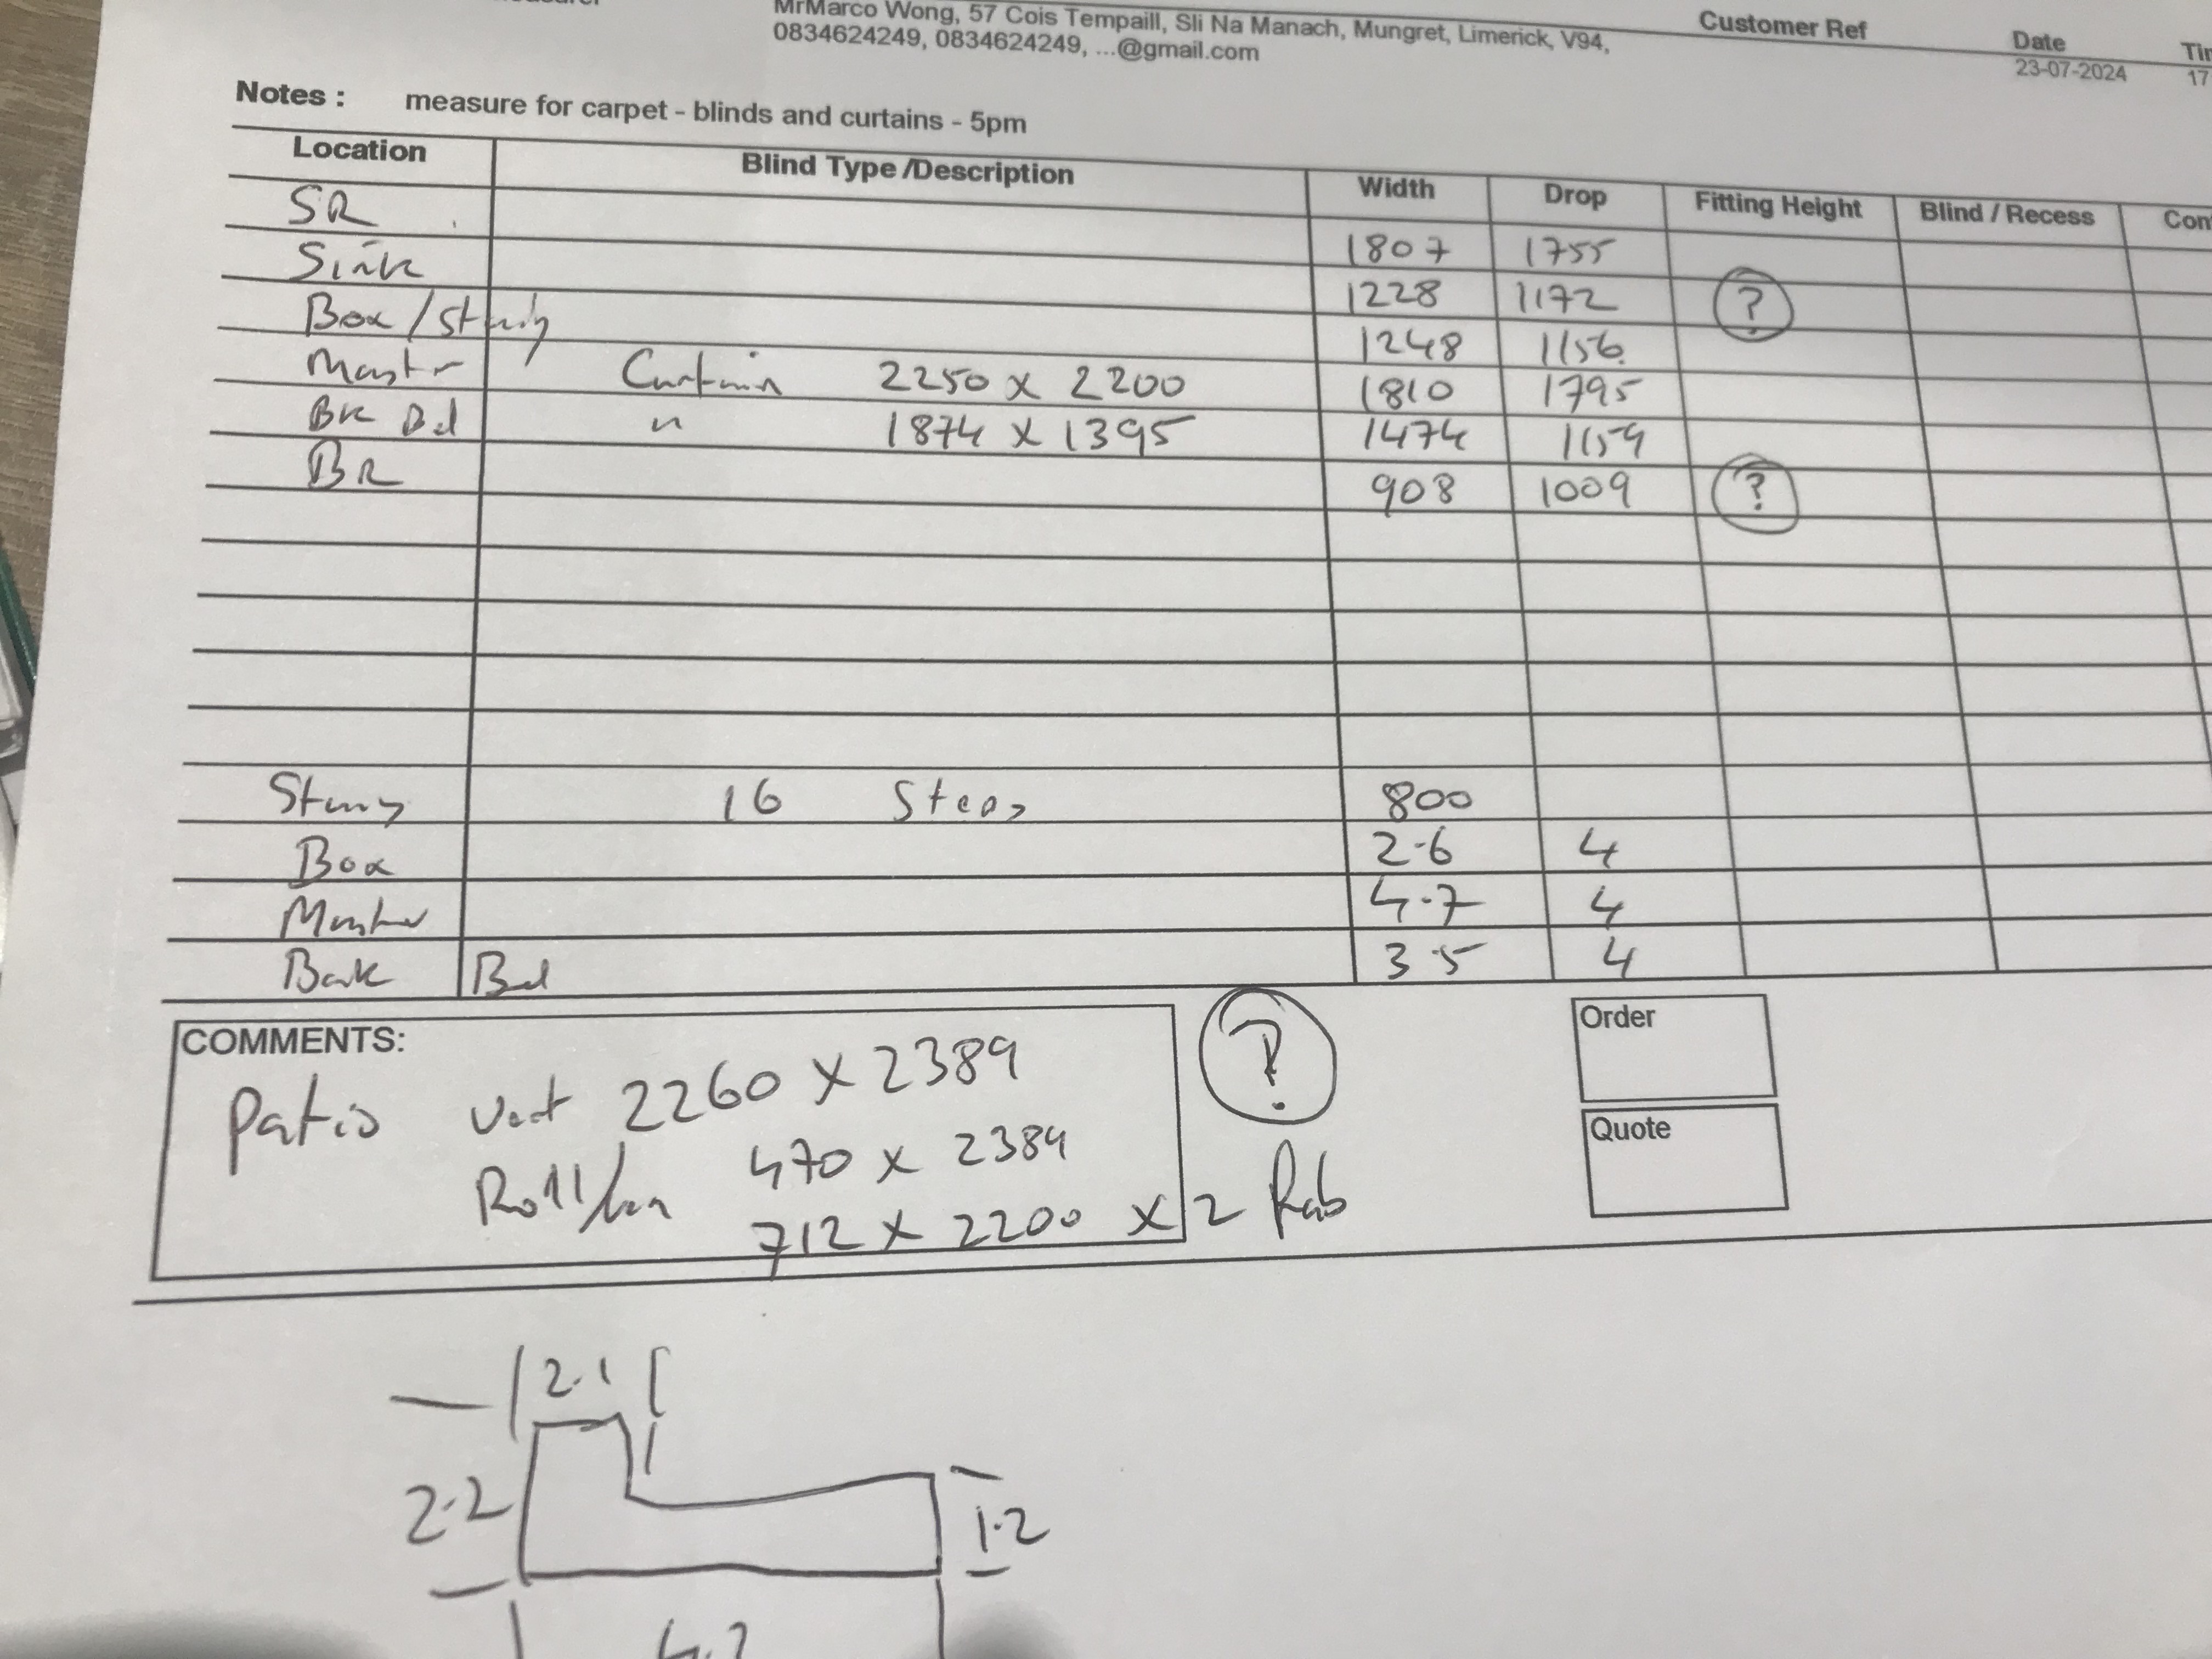 MrMarco Wong, 57 Cois Tempaill, Sli Na Manach, Mungret, Limerick, V94,
0834624249, 0834624249, ...@gmail.com
Customer Ref
Date
23-07-2024
17
Notes : measure for carpet - blinds and curtains - 5pm
Location Blind Type /Description Width Drop Fitting Height Blind / Recess
SR 1807 1755
Sink 1228 1172 ?
Box/Study 1248 1156
Master Curtain 2250 x 2200 1810 1795
BK Bed " 1874 x 1395 1474 1159
BR 908 1009 ?
16 Steps 800
Box 2.6 4
Master 4.7 4
Back Bed 3.5 4
COMMENTS:
Patio Vert 2260 x 2389 ?
470 x 2389
712 x 2200 x 2
Order
Quote
2.1
2.2
1.2